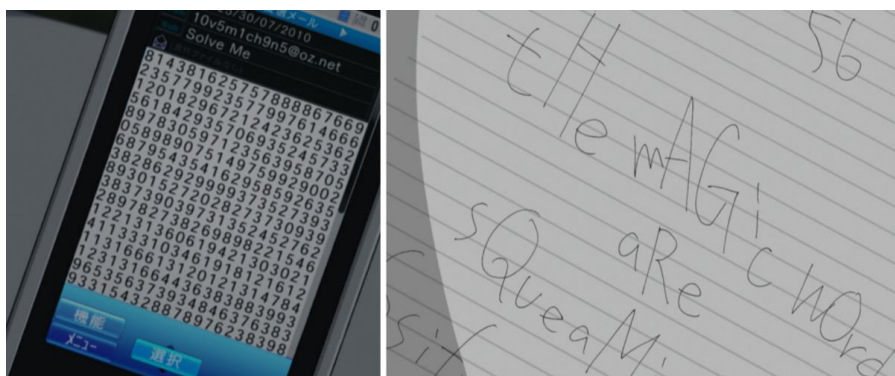 05/30/07/2010
10v5m1ch9n5@oz.net
Solve Me
814381625757888867669
235779923577997614666
120182967212423625362
561842935706935245733
897830597123563958705
058989075149759929002
687954354162958592635
382862929999373527393
893015272202827370939
3837139039731352452762
289782738269898221546
122131360619421303021
411333103461918121612
113166613120121314784
123131664436383883993
965353637393484637 6383
933154328878976238398
機能
メニュー
選択
56
tHe mAGic wOrd
aRe
sQueaMi
sif